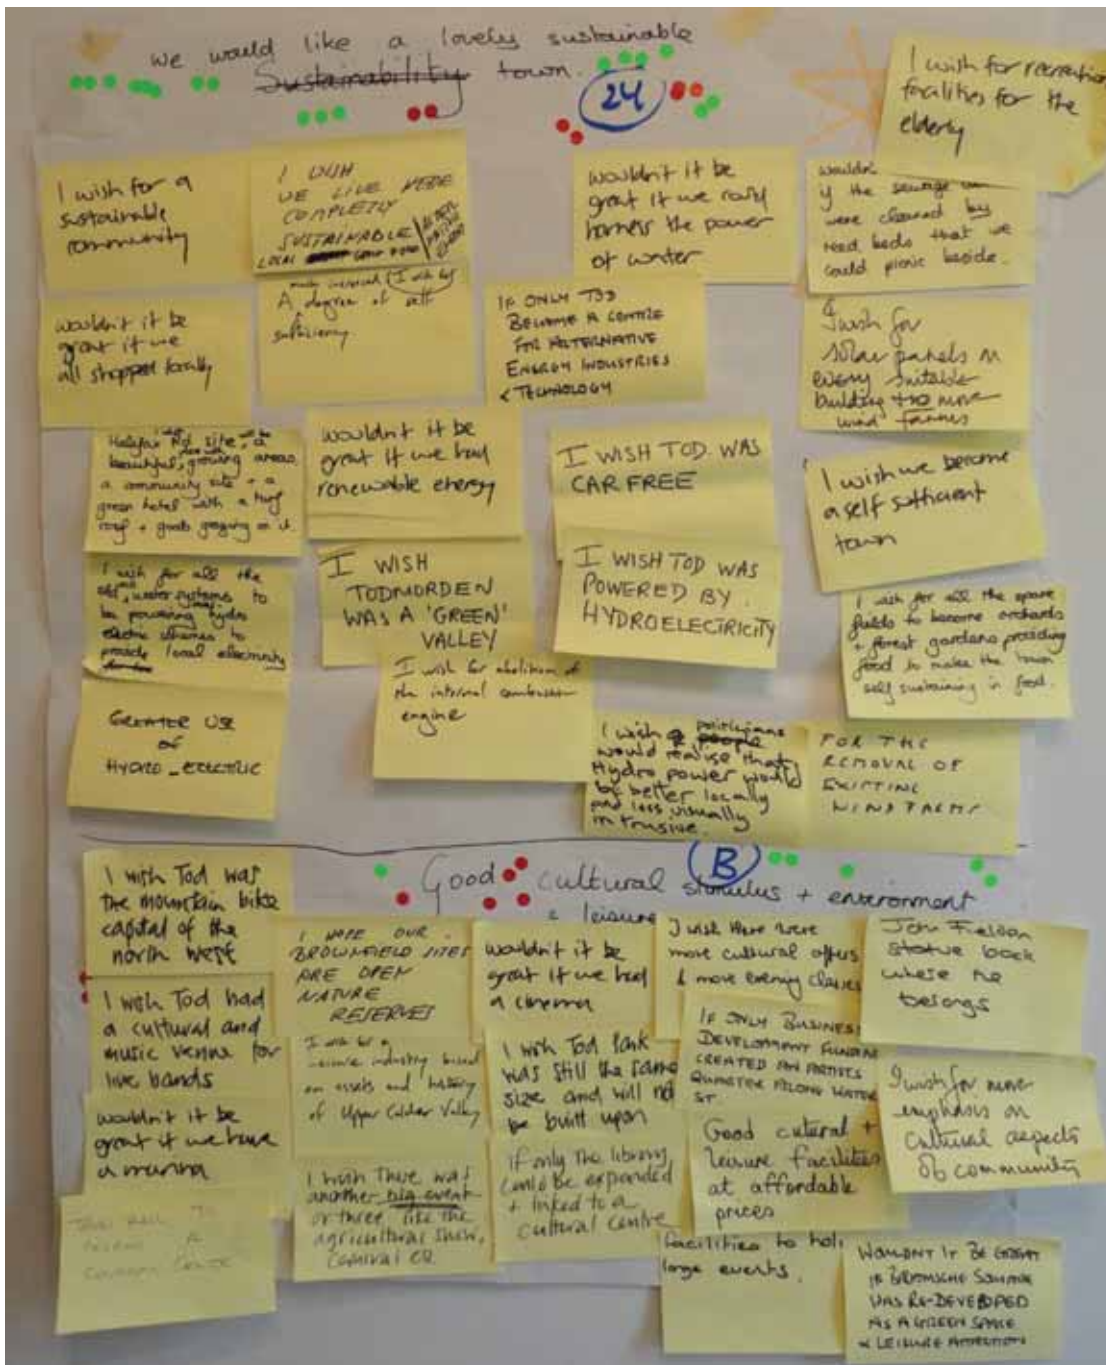 We would like a lovely sustainable
Sustainability town.
24
I wish for recreation
facilities for the
elderly
I wish for a
sustainable
community
I WISH
WE LIVE HERE
COMPLETELY
SUSTAINABLE
LOCAL
wouldn't it be
great if we could
harness the power
of water
if the sewage
were cleaned by
reed beds that we
could picnic beside.
wouldn't it be
great if we
all shopped locally
much increased I wish for
A degree of self
sufficiency
IF ONLY TOD
BECAME A CENTRE
FOR ALTERNATIVE
ENERGY INDUSTRIES
& TECHNOLOGY
I wish for
solar panels on
every suitable
building + no more
wind farms
Halifax Rd site, a
beautiful, growing areas
a community site + a
green hotel with a turf
roof + goats grazing on it.
wouldn't it be
great if we had
renewable energy
I WISH TOD WAS
CAR FREE
I wish we became
a self sufficient
town
I wish for all the
old water systems to
be powering hydro
electric schemes to
provide local electricity
I WISH
TODMORDEN
WAS A 'GREEN'
VALLEY
I WISH TOD WAS
POWERED BY
HYDROELECTRICITY
I wish for all the spare
fields to become orchards
+ forest gardens providing
food to make the town
self sustaining in food.
GREATER USE
OF
HYDRO_ELECTRIC
I wish for abolition of
the internal combustion
engine
I wish people
would realise that
Hydro power would
be better locally
and less visually
intrusive.
FOR THE
REMOVAL OF
EXISTING
WIND FARMS
B
Good cultural stimulus + environment
+ leisure
I wish Tod was
the mountain bike
capital of the
north west
I HOPE OUR
BROWNFIELD SITES
ARE OPEN
NATURE
RESERVES
wouldn't it be
great if we had
a cinema
I wish there were
more cultural offers
& more evening classes
John Fielden
statue back
where he
belongs
I wish Tod had
a cultural and
music venue for
live bands
I wish for a
leisure industry based
on assets and history
of Upper Calder Valley
I wish Tod Park
was still the same
size and will not
be built upon
IF ONLY BUSINESS
DEVELOPMENT FUNDING
CREATED AN ARTISTS
QUARTER ALONG WATER
ST.
I wish for more
emphasis on
cultural aspects
of community
wouldn't it be
great if we have
a marina
I wish There was
another big event
or three like the
agricultural show,
Carnival eq.
if only the library
could be expanded
+ linked to a
cultural centre
Good cutural +
leisure facilities
at affordable
prices
TOWN HALL TO
BECOME A
facilities to
large events.
WOULDN'T IT BE GREAT
IF BRAMSCHE SQUARE
WAS RE-DEVELOPED
AS A GREEN SPACE
& LEISURE ATTRACTION